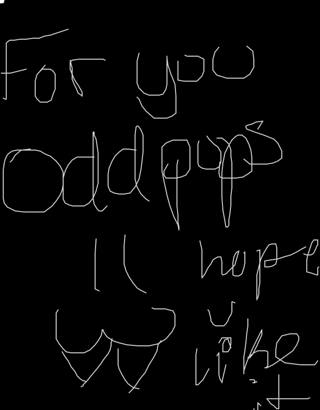 For you
Odd pups
hope
u
like
it